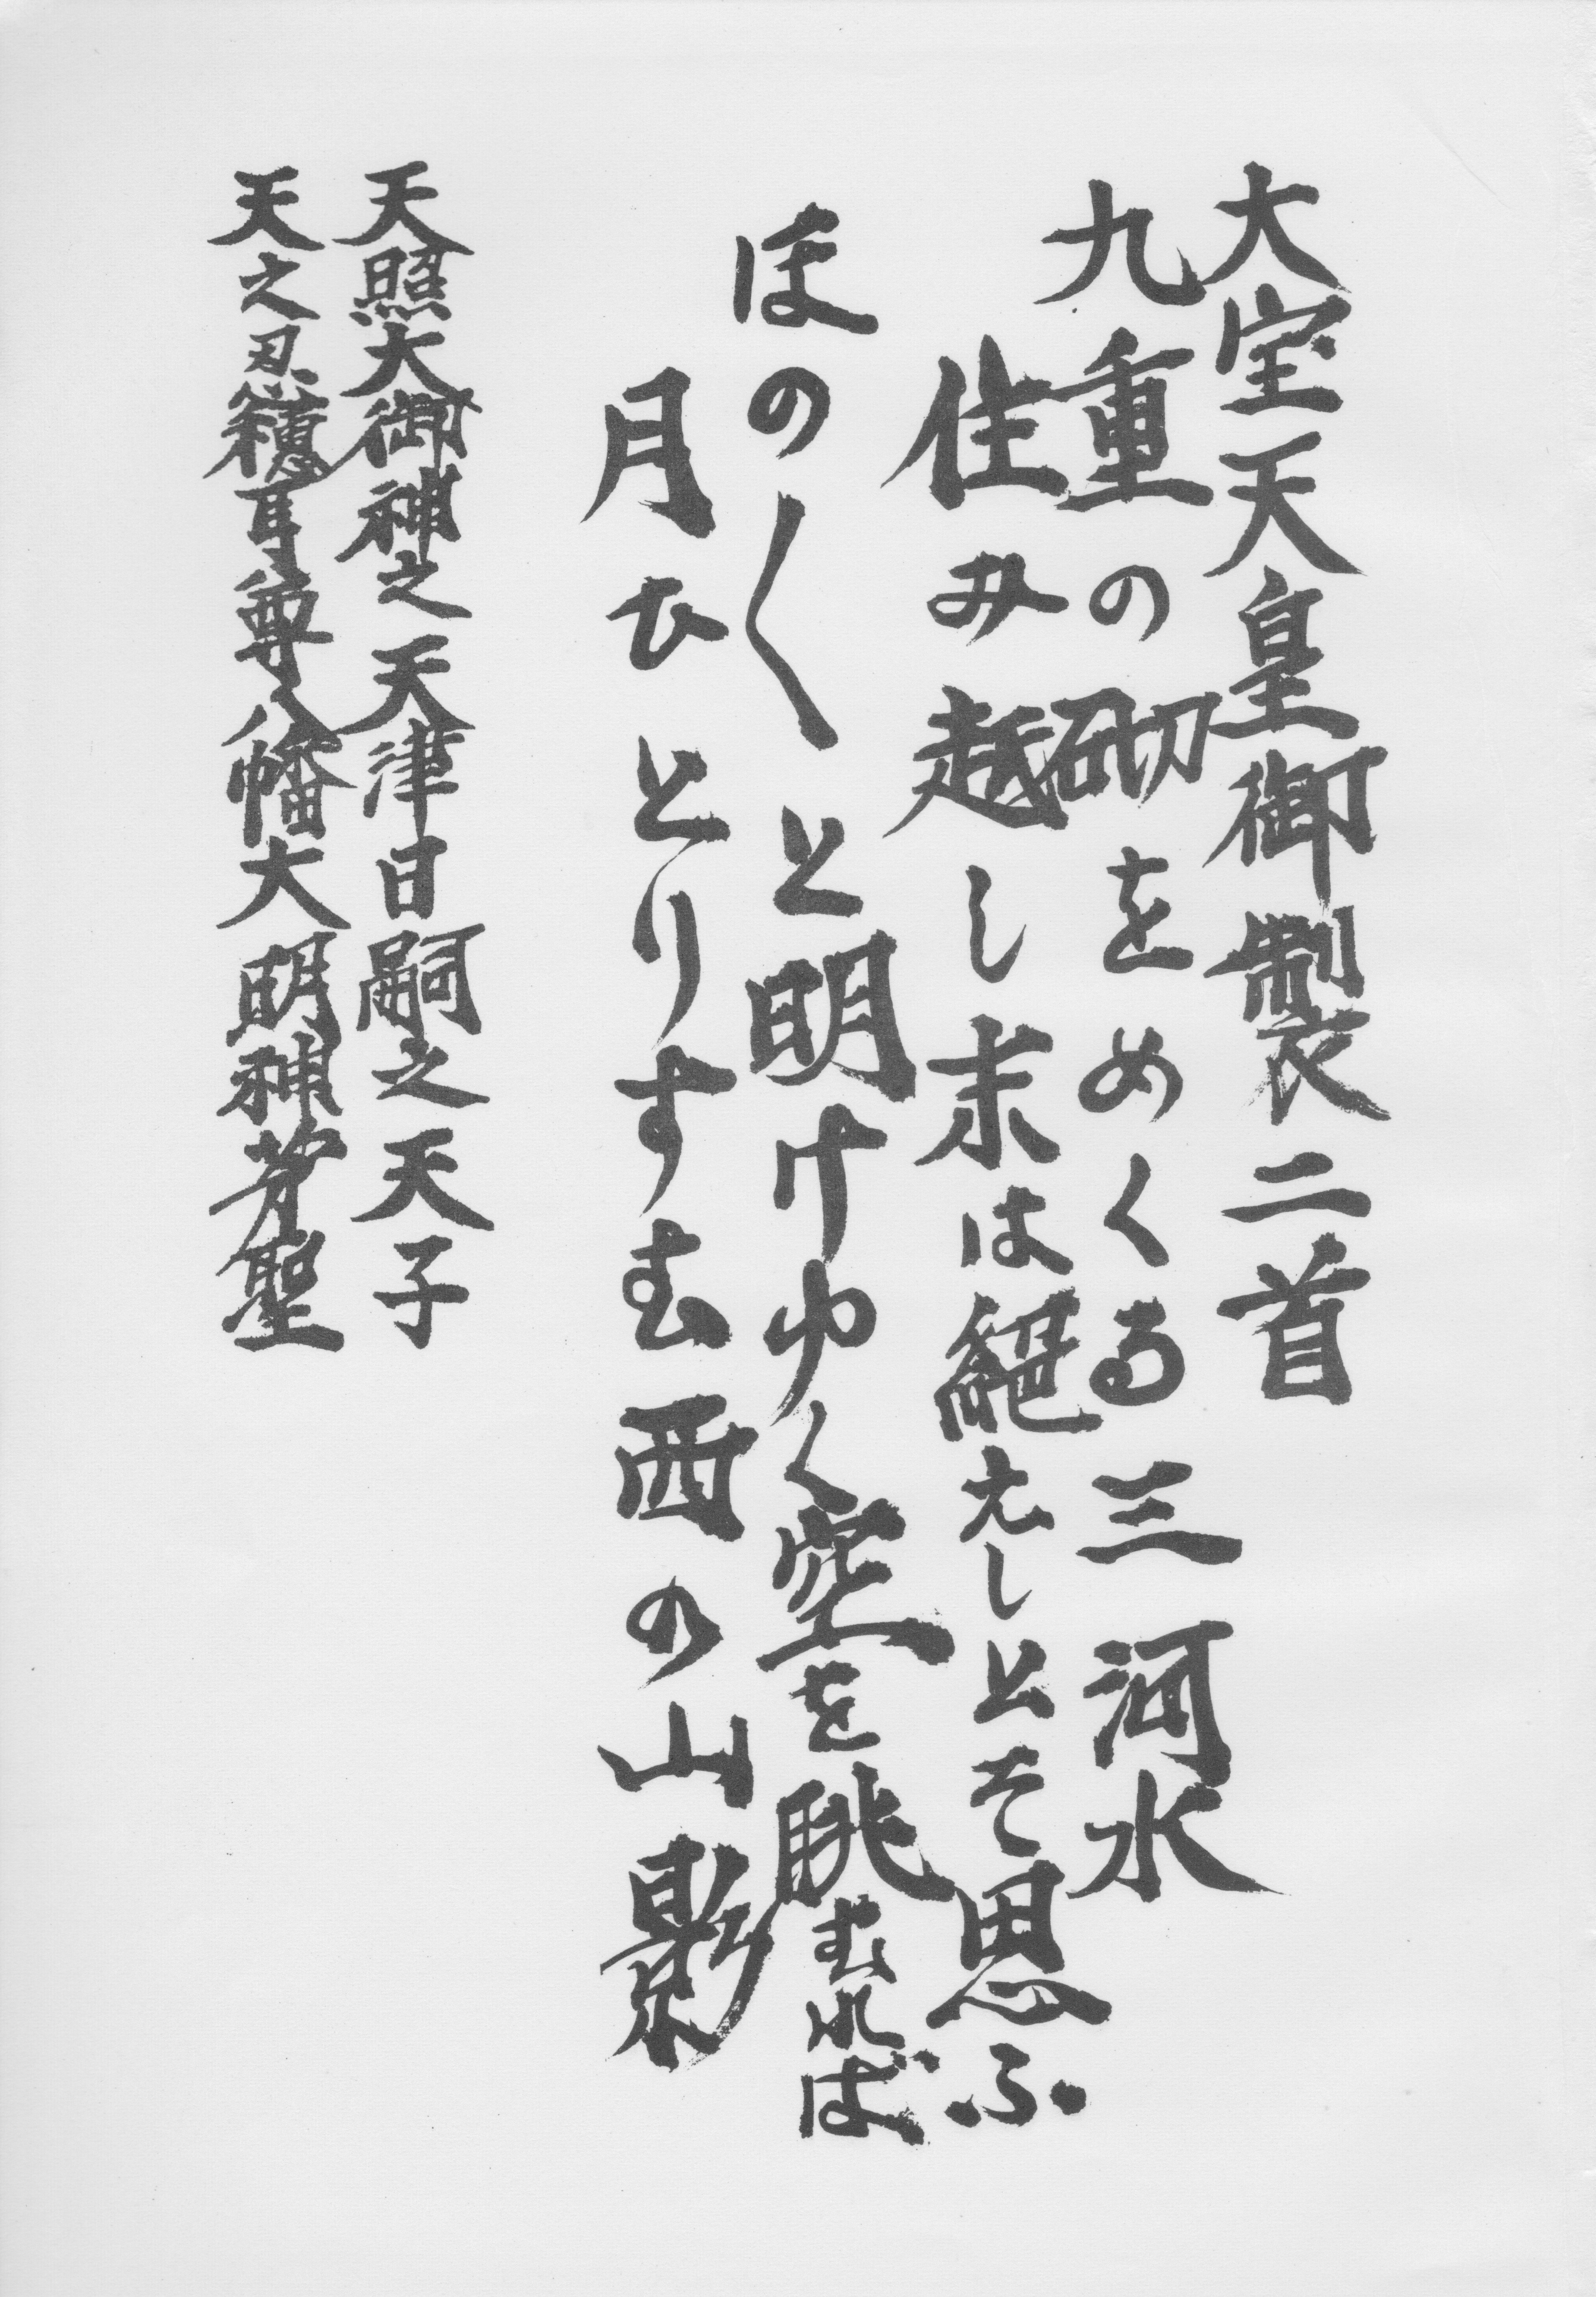 大宝天皇御製二首
九重の砌をめくる三河水
住み越し末は絕えしとそ思ふ
ほの〱と明けゆく空を眺むれば
月ひとりすむ西の山影
天照大御神之天津日嗣之天子
天之忍穂耳尊八幡大明神芳聖